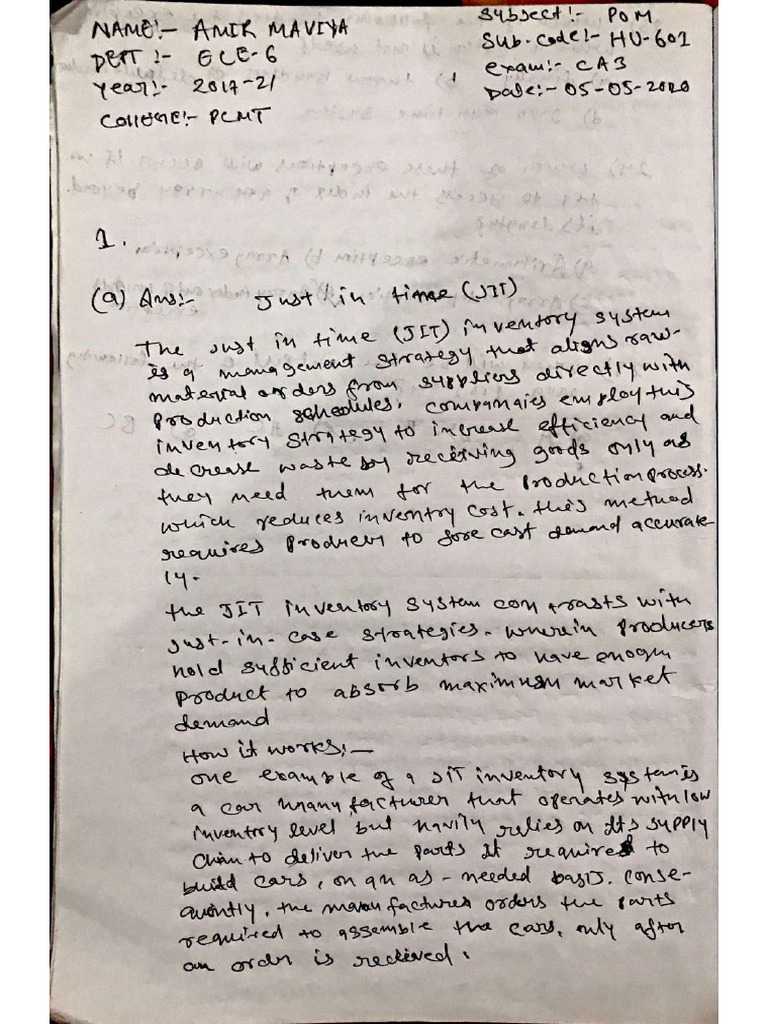 NAME:- AMIR MAVIYA
DEPT :- ECE-6
Year:- 2017-21
COllEGE:- PCMT
Subject:- POM
Sub.code:- HU-601
exam:- CA3
Date:- 05-05-2020
1.
(a) Ans:- Just in time (JIT)
The Just in time (JIT) inventory system
is a management strategy that aligns raw-
material orders from suppliers directly with
production schedules. companaies employ this
inventory strategy to increase efficiency and
decrease waste by receiving goods only as
they need them for the productionprocess.
which reduces inventry cost. this method
requires producers to forecast demand accurate
ly.
the JIT inventory system contrasts with
just-in-case strategies. wherein producers
hold sufficient inventors to have enogh
product to absorb maximum market
demand
How it works:—
one example of a JIT inventory system is
a car manyfacturer that operates with low
inventory level but havily relies on its supply
chain to deliver the parts it requires to
build cars, on an as-needed basis. conse-
quently, the manufactures orders the parts
required to assemble the cars, only after
an order is recieved.